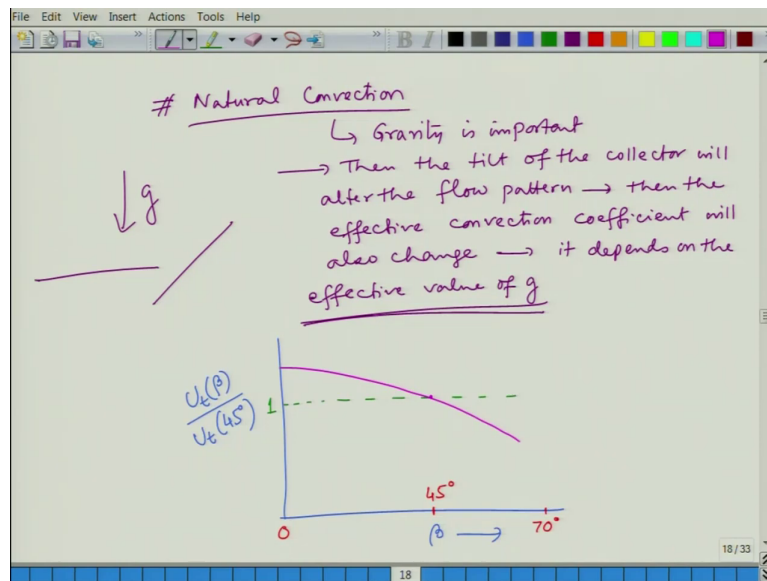 File Edit View Insert Actions Tools Help
# Natural Convection
↳ Gravity is important
→ Then the tilt of the collector will
alter the flow pattern → then the
effective convection coefficient will
also change → it depends on the
effective value of g
↓ g
U_t(β)
U_t(45°)
1
45°
0
β →
70°
18/33
18